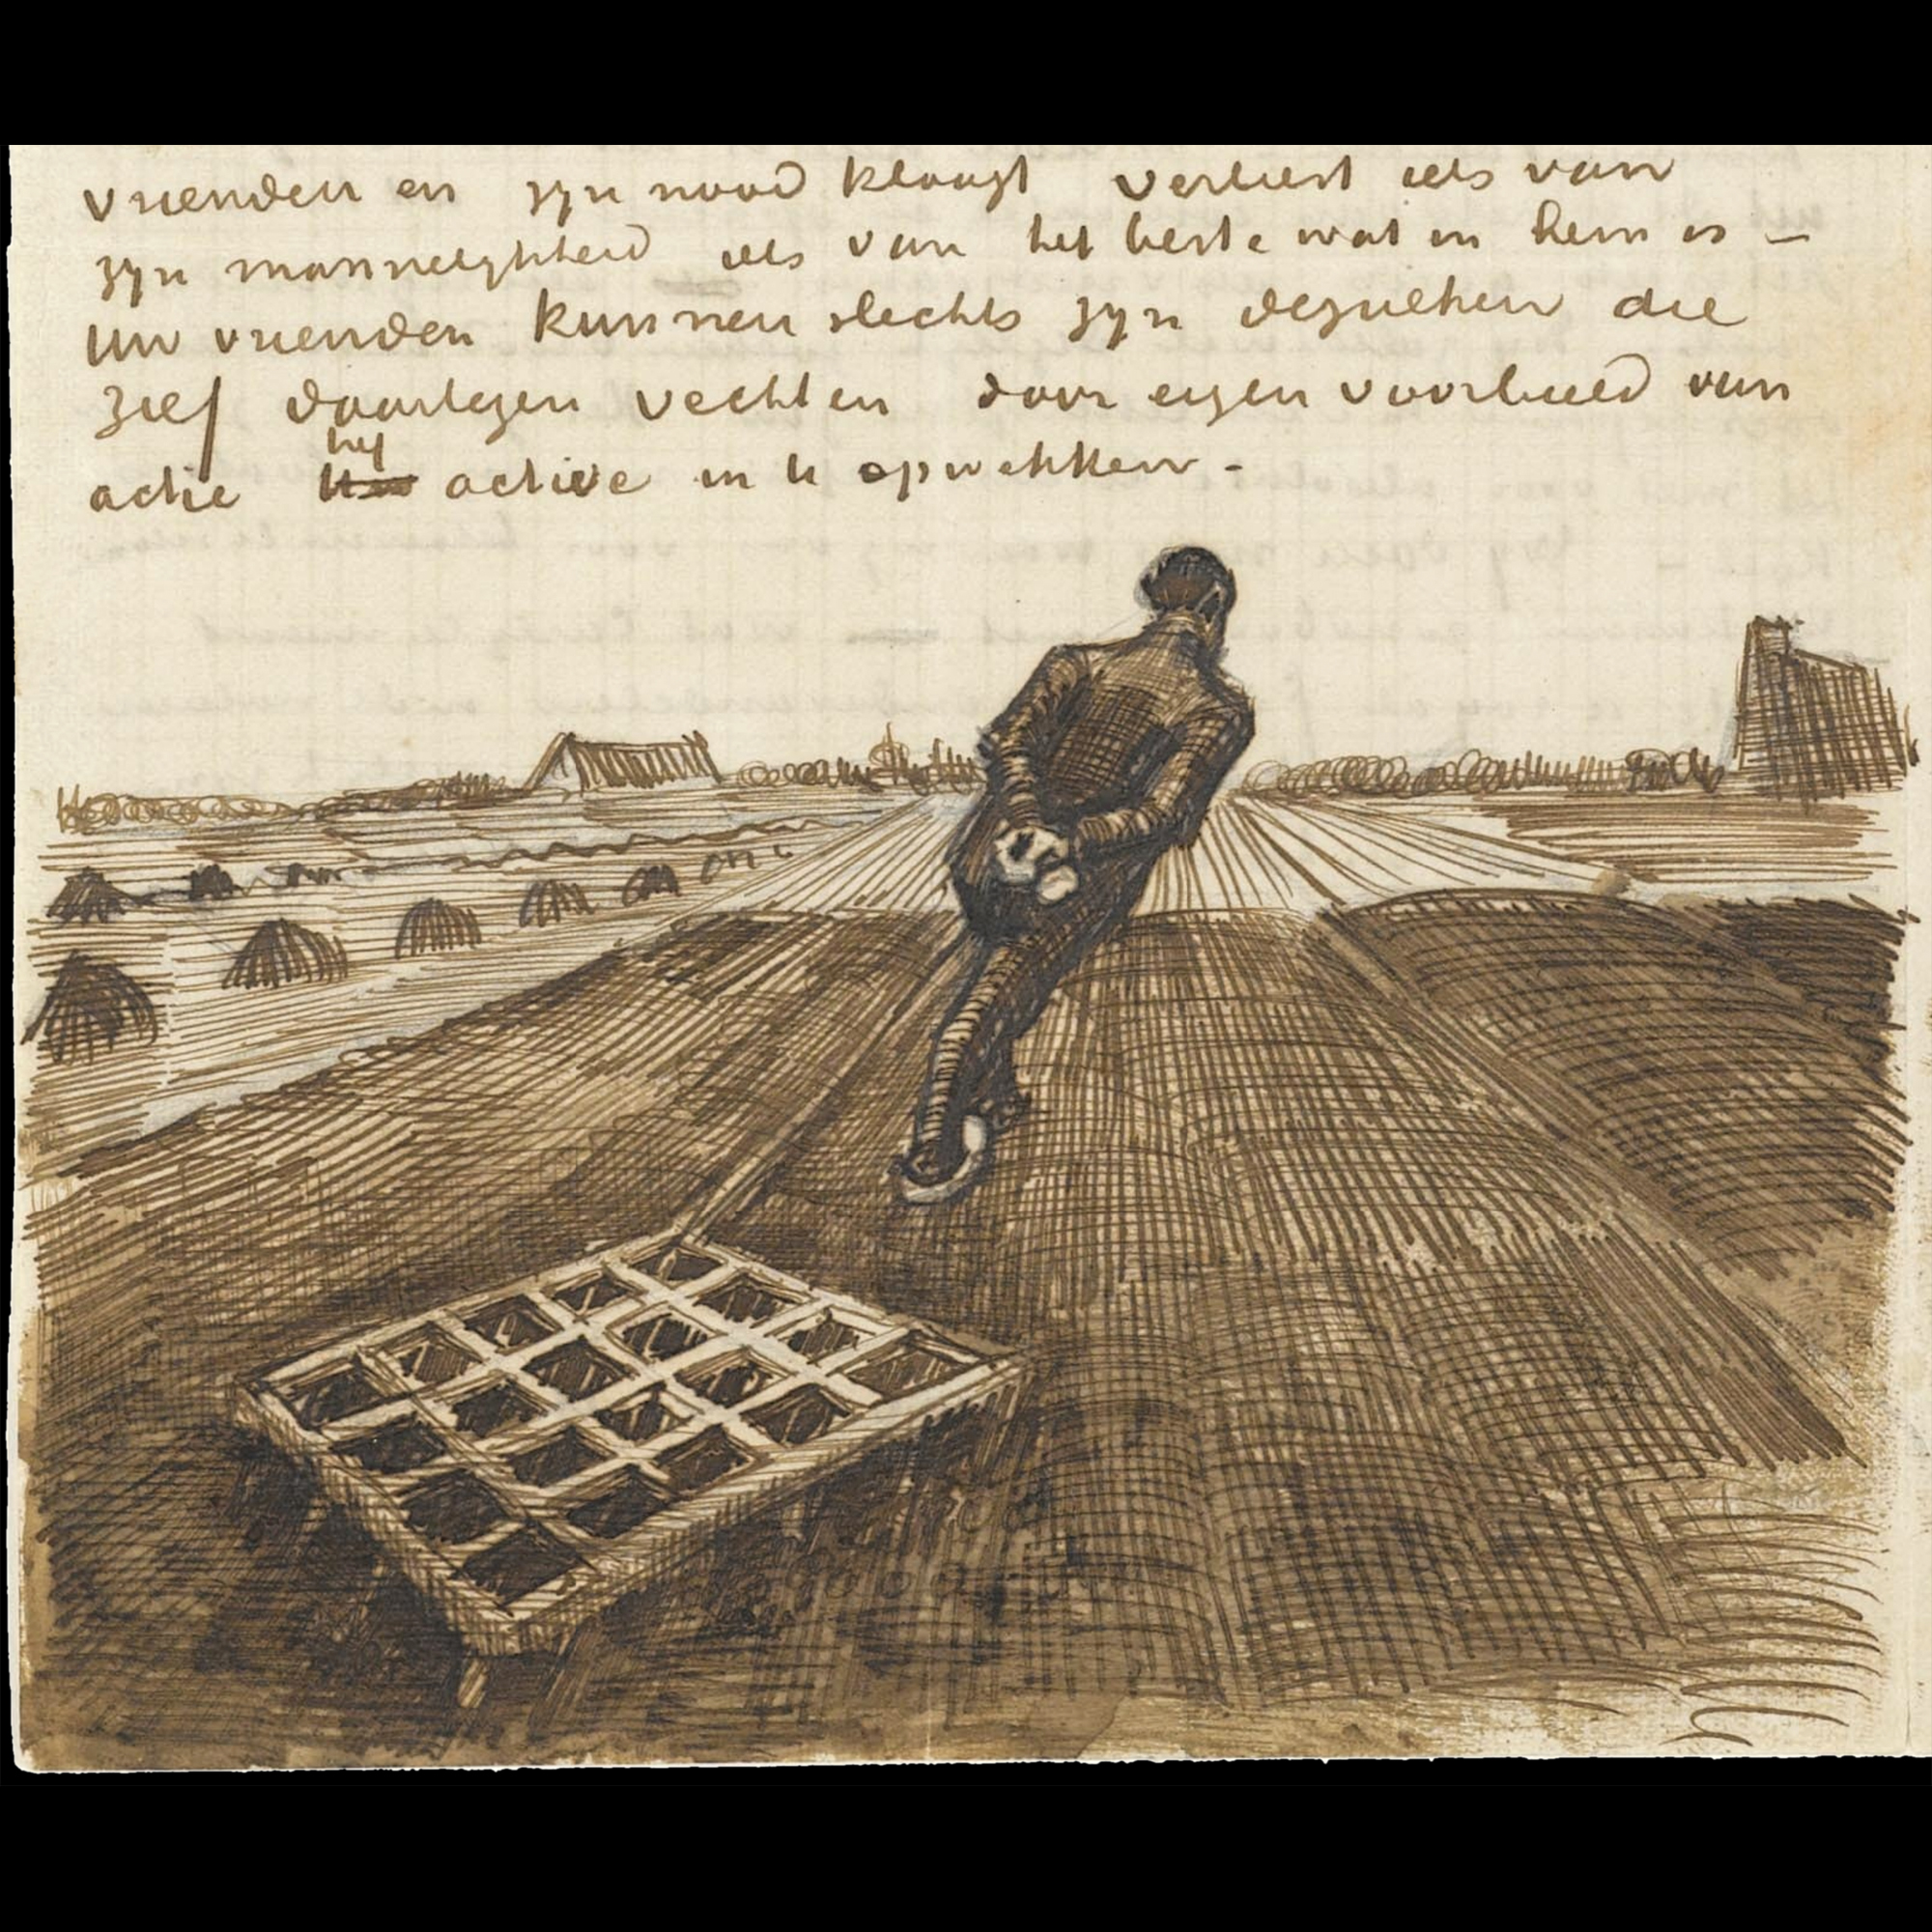 vrienden en zyn nood klaagt verliest iets van
zyn mannelykheid iets van het beste wat in hem is —
Uw vrienden kunnen slechts zyn degenen die
zelf daartegen vechten door eigen voorbeeld van
actie het actieve in U opwekken -